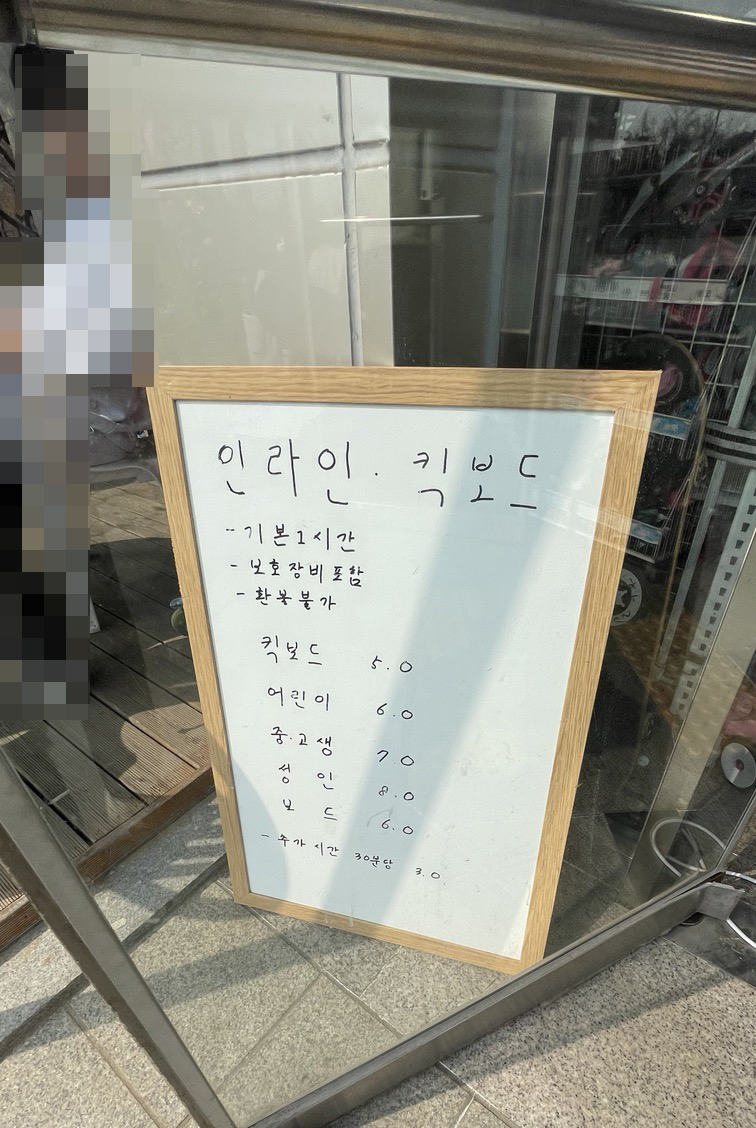 인라인 . 킥보드
- 기본 1시간
- 보호장비포함
- 환불불가
킥보드 5.0
어린이 6.0
중.고생 7.0
성인 8.0
보드 6.0
- 추가시간 30분당 3.0